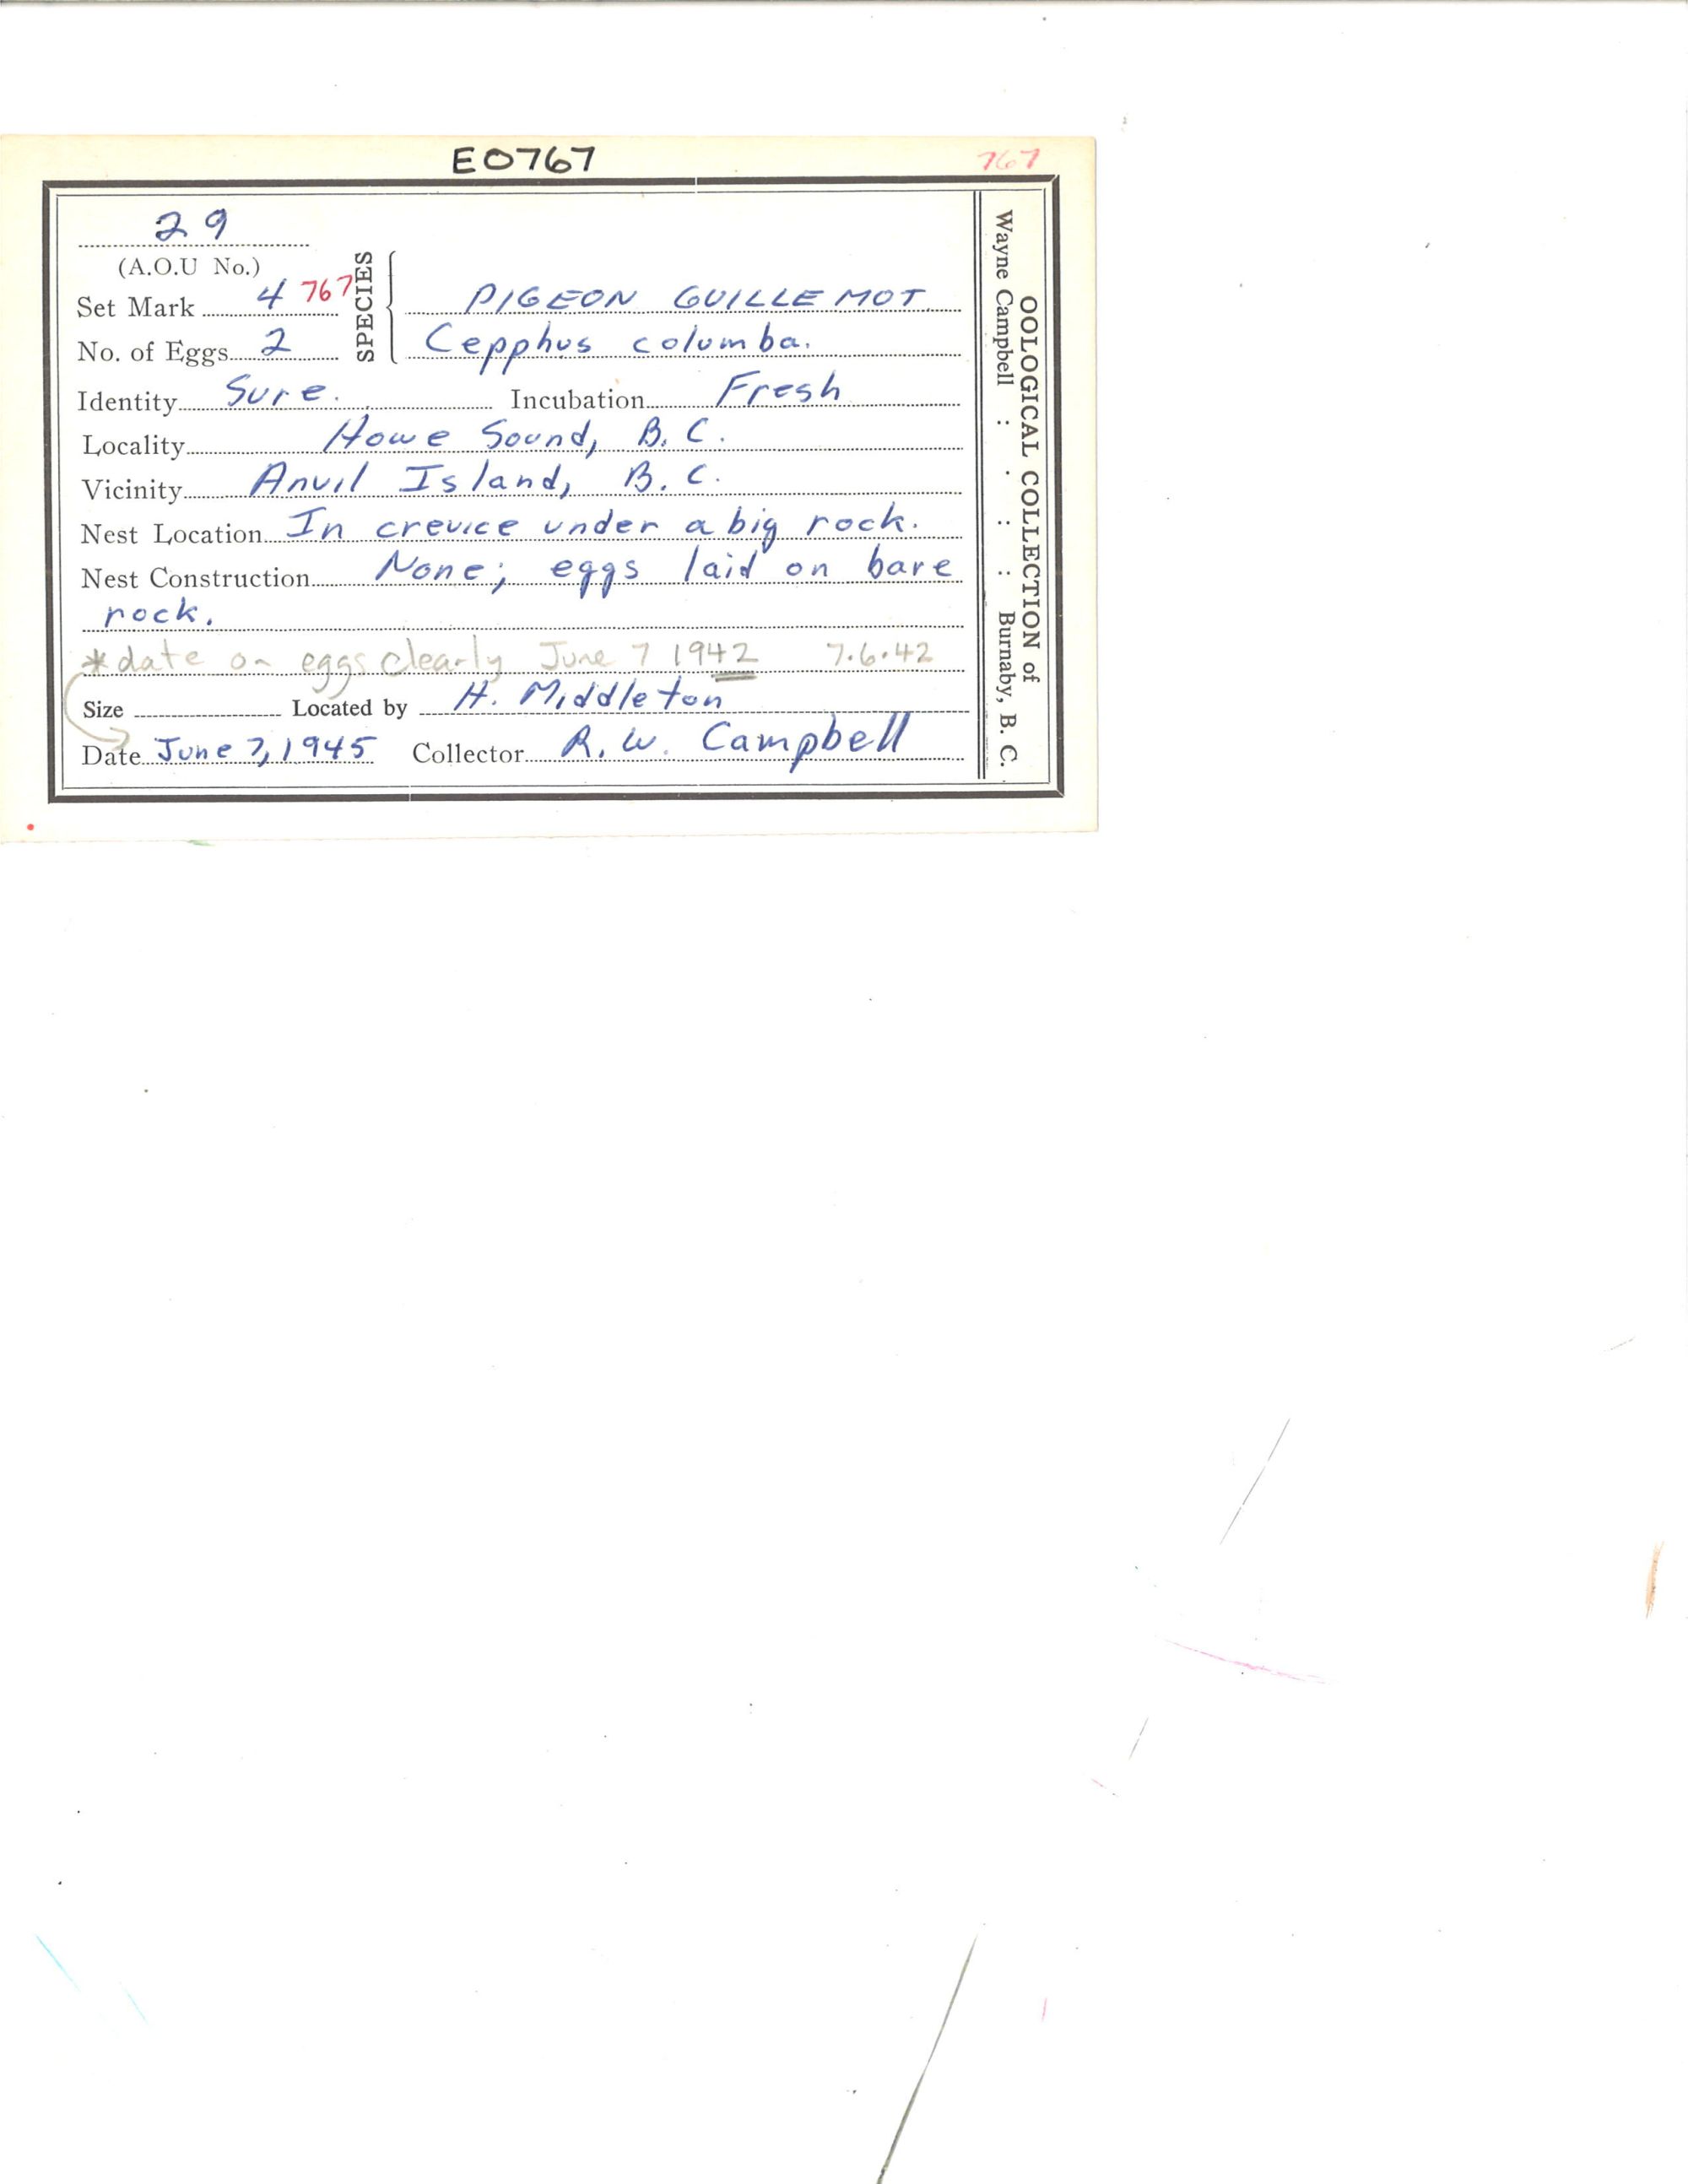 E0767
767
29
(A.O.U No.)
Set Mark 4 767
No. of Eggs 2
SPECIES
PIGEON GUILLEMOT
Cepphus columba.
Identity Sure. Incubation Fresh
Locality Howe Sound, B.C.
Vicinity Anvil Island, B.C.
Nest Location In crevice under a big rock.
Nest Construction None; eggs laid on bare
rock.
*date on eggs clearly June 7 1942 7.6.42
Size Located by H. Middleton
Date June 7, 1945 Collector R.W. Campbell
OOLOGICAL COLLECTION of
Wayne Campbell : . : : Burnaby, B. C.